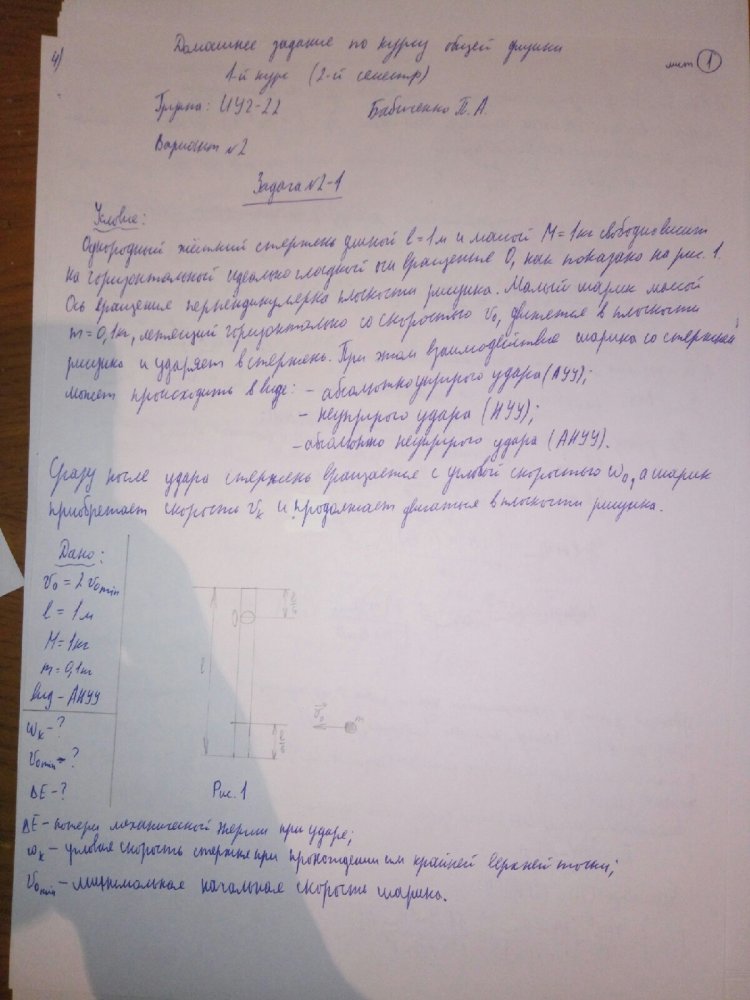 4)
Домашнее задание по курсу общей физики
лист 1
1-й курс (2-й семестр)
Группа: ИУ2-22 Бабиченко П.А.
Вариант №2
Задача №2-1
Условие:
Однородный жёсткий стержень длиной l=1м и массой M=1кг свободно висит
на горизонтальной идеально гладкой оси вращения O, как показано на рис. 1.
Ось вращения перпендикулярна плоскости рисунка. Малый шарик массой
m=0,1кг, летящий горизонтально со скоростью v₀, движется в плоскости
рисунка и ударяет в стержень. При этом взаимодействие шарика со стержнем
может происходить в виде: - абсолютно упругого удара (АУУ);
- неупругого удара (НУУ);
- абсолютно неупругого удара (АНУУ).
Сразу после удара стержень вращается с угловой скоростью ω₀, а шарик
приобретает скорость vк и продолжает двигаться в плоскости рисунка.
Дано:
v₀ = 2 v₀min
l = 1м
M = 1кг
m = 0,1кг
вид - АНУУ
ωк - ?
v₀min - ?
ΔE - ?
O
l
v₀
m
Рис. 1
ΔE - потери механической энергии при ударе;
ωк - угловая скорость стержня при прохождении им крайней верхней точки;
v₀min - минимальная начальная скорость шарика.